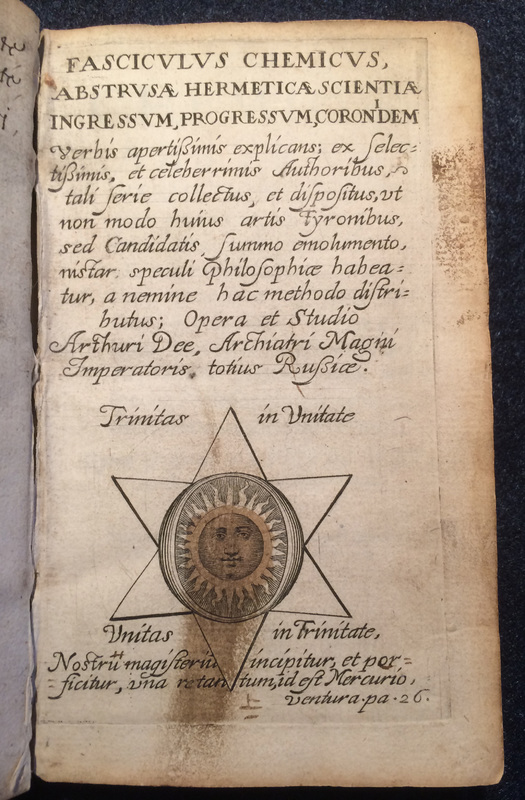 FASCICVLVS CHEMICVS,
ABSTRVSÆ HERMETICÆ SCIENTIÆ
INGRESSVM, PROGRESSVM, CORONIDEM
verbis apertißimis explicans; ex selec=
tißimis, et celeberrimis Authoribus,
tali serie collectus, et dispositus, vt
non modo huius artis Tyronibus,
sed Candidatis, summo emolumento,
instar speculi Philosophiæ habea=
tur, a nemine hac methodo distri=
butus; Opera et Studio
Arthuri Dee, Archiatri Magni
Imperatoris totius Rußiæ.
Trinitas in Vnitate
Vnitas in Trinitate,
Nostrū magisteriū incipitur, et per=
=ficitur, vna re tantum, id est Mercurio,
Ventura. pa. 26.